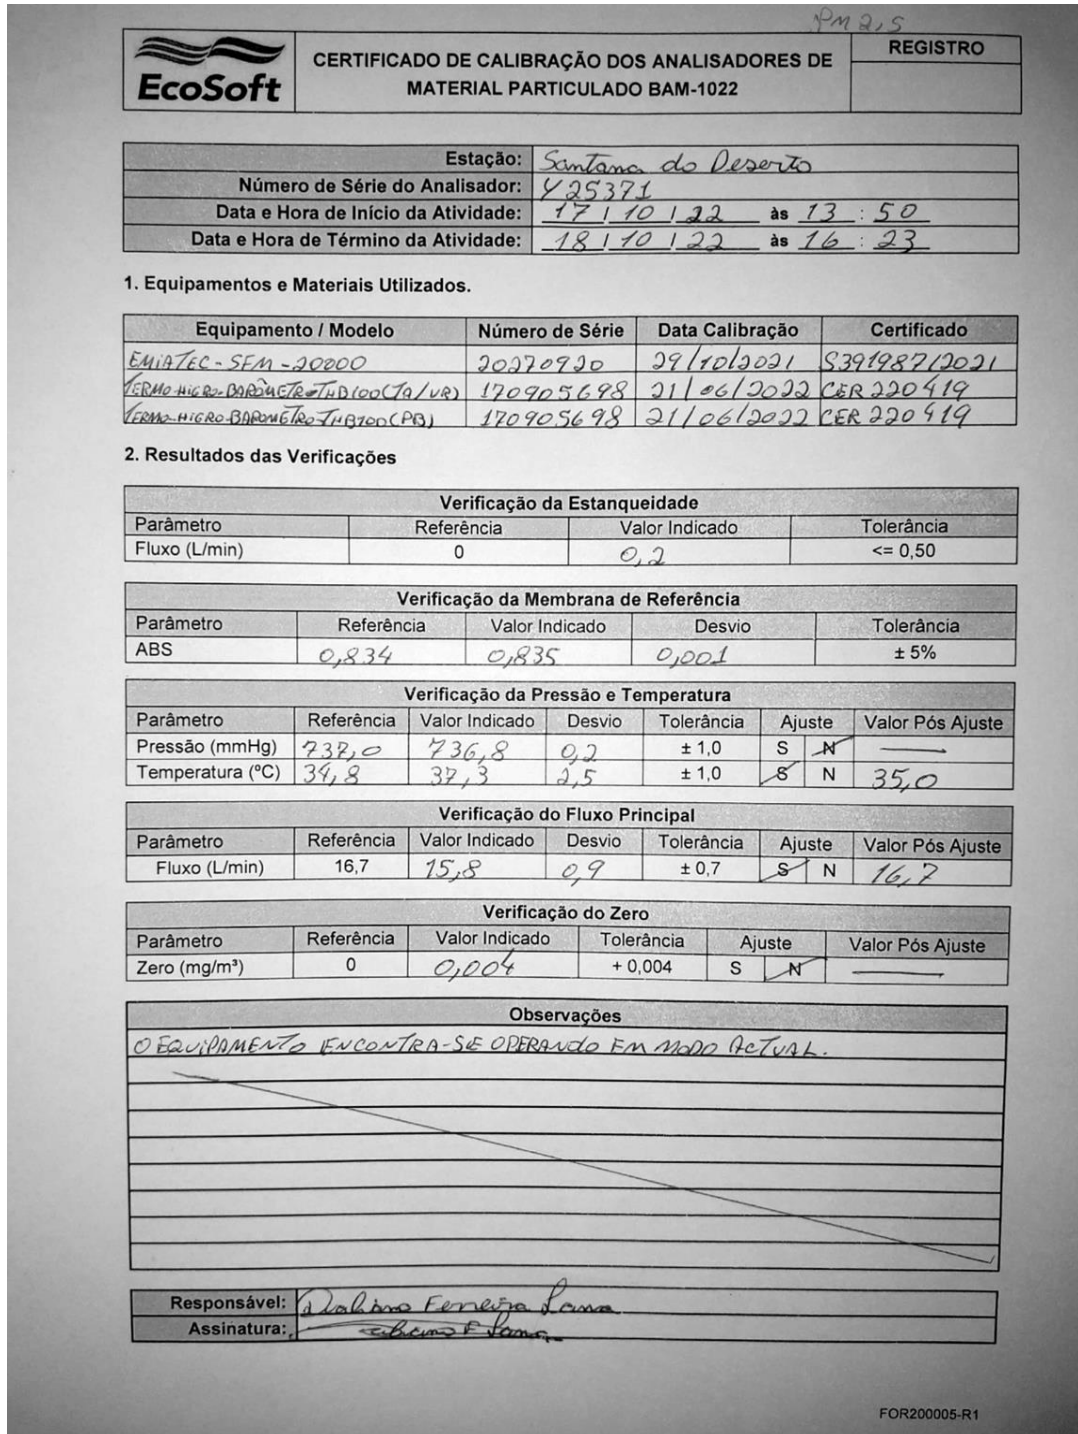 PM 2,5
EcoSoft
CERTIFICADO DE CALIBRAÇÃO DOS ANALISADORES DE
MATERIAL PARTICULADO BAM-1022
REGISTRO
Estação: Santana do Deserto
Número de Série do Analisador: Y25371
Data e Hora de Início da Atividade: 17 / 10 / 22 às 13 : 50
Data e Hora de Término da Atividade: 18 / 10 / 22 às 16 : 23
1. Equipamentos e Materiais Utilizados.
Equipamento / Modelo Número de Série Data Calibração Certificado
EMIATEC-SFM-20000 20270920 29/10/2021 S391987/2021
TERMO-HIGRO-BARÔMETRO-THB100(TA/UR) 170905698 21/06/2022 CER 220419
TERMO-HIGRO-BAROMETRO-THB100(PB) 170905698 21/06/2022 CER 220419
2. Resultados das Verificações
Verificação da Estanqueidade
Parâmetro Referência Valor Indicado Tolerância
Fluxo (L/min) 0 0,2 <= 0,50
Verificação da Membrana de Referência
Parâmetro Referência Valor Indicado Desvio Tolerância
ABS 0,834 0,835 0,001 ± 5%
Verificação da Pressão e Temperatura
Parâmetro Referência Valor Indicado Desvio Tolerância Ajuste Valor Pós Ajuste
Pressão (mmHg) 737,0 736,8 0,2 ± 1,0 S N —
Temperatura (ºC) 34,8 37,3 2,5 ± 1,0 S N 35,0
Verificação do Fluxo Principal
Parâmetro Referência Valor Indicado Desvio Tolerância Ajuste Valor Pós Ajuste
Fluxo (L/min) 16,7 15,8 0,9 ± 0,7 S N 16,7
Verificação do Zero
Parâmetro Referência Valor Indicado Tolerância Ajuste Valor Pós Ajuste
Zero (mg/m³) 0 0,004 + 0,004 S N —
Observações
O EQUIPAMENTO ENCONTRA-SE OPERANDO EM MODO ACTUAL.
Responsável: Ferreira Lana
Assinatura: F Lana
FOR200005-R1